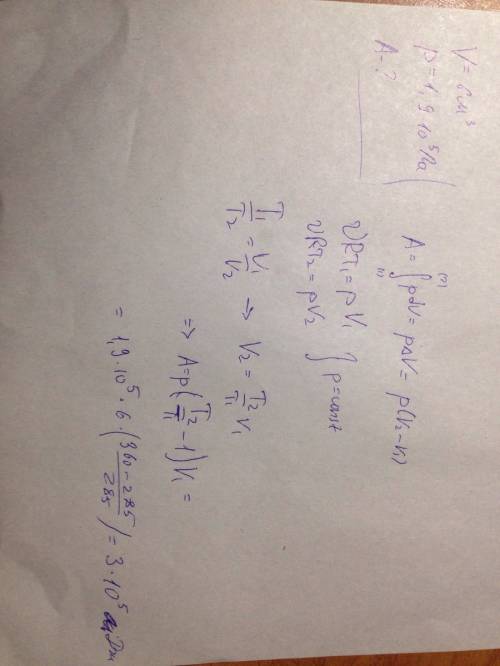 V = 6 м³
p = 1,9·10⁵ Па
A - ?
A = ∫₍₁₎⁽²⁾ pdV = pΔV = p(V₂ - V₁)
νRT₁ = pV₁
νRT₂ = pV₂ } p = const
T₁/T₂ = V₁/V₂ → V₂ = T₂/T₁ V₁
=> A = p(T₂/T₁ - 1)V₁ =
= 1,9·10⁵ · 6 · (360 - 285 / 285) = 3·10⁵ Дж